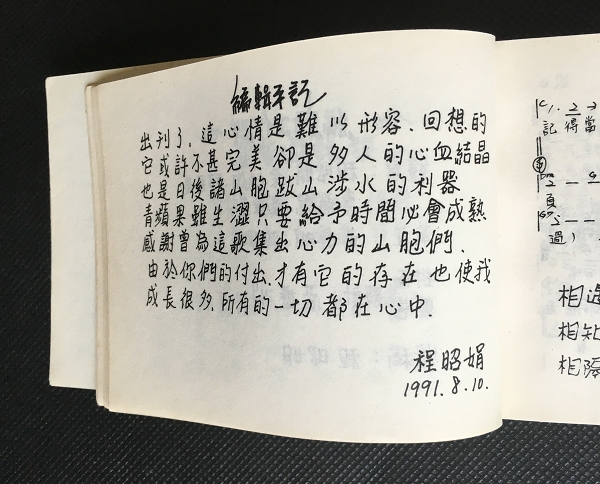 編輯手記
出刊了，這心情是難以形容．回想的
它或許不甚完美卻是多人的心血結晶
也是日後諸山胞跋山涉水的利器
青蘋果雖生澀只要給予時間必會成熟
感謝曾為這歌集出心力的山胞們．
由於你們的付出，才有它的存在也使我
成長很多，所有的一切都在心中．
程昭娟
1991.8.10.
記得當
頁
過）
相逢
相知